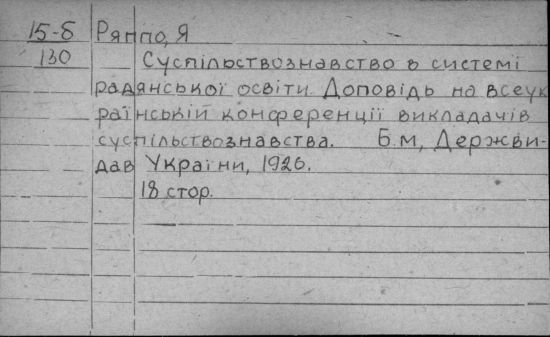 15-б Ряппо, Я
130
Суспільствознавство в системі
радянської освіти Доповідь на всеук
раїнській конференції викладачів
суспільствознавства. Б.м, Держви-
дав України, 1926.
18 стор.